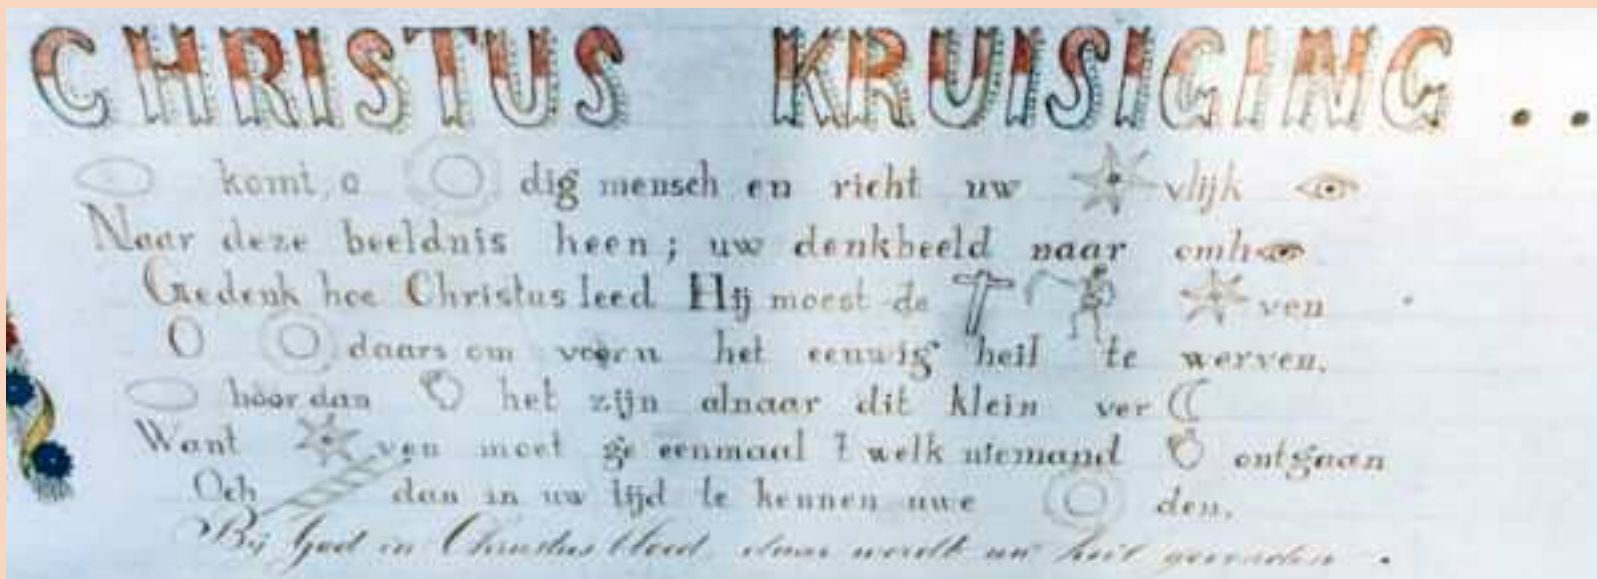 CHRISTUS KRUISIGING . .
komt, o dig mensch en richt uw vlijk
Naar deze beeldnis heen ; uw denkbeeld naar omh
Gedenk hoe Christus leed Hij moest de ven
O daars om voorn het eeuwig heil te werven.
hoor dan het zijn alnaar dit klein ver
Want ven moet ge eenmaal 't welk niemand ontgaan
Och dan in uw tijd te kennen uwe den.
Bij God in Christus bloed, daar wordt uw heil gevonden .